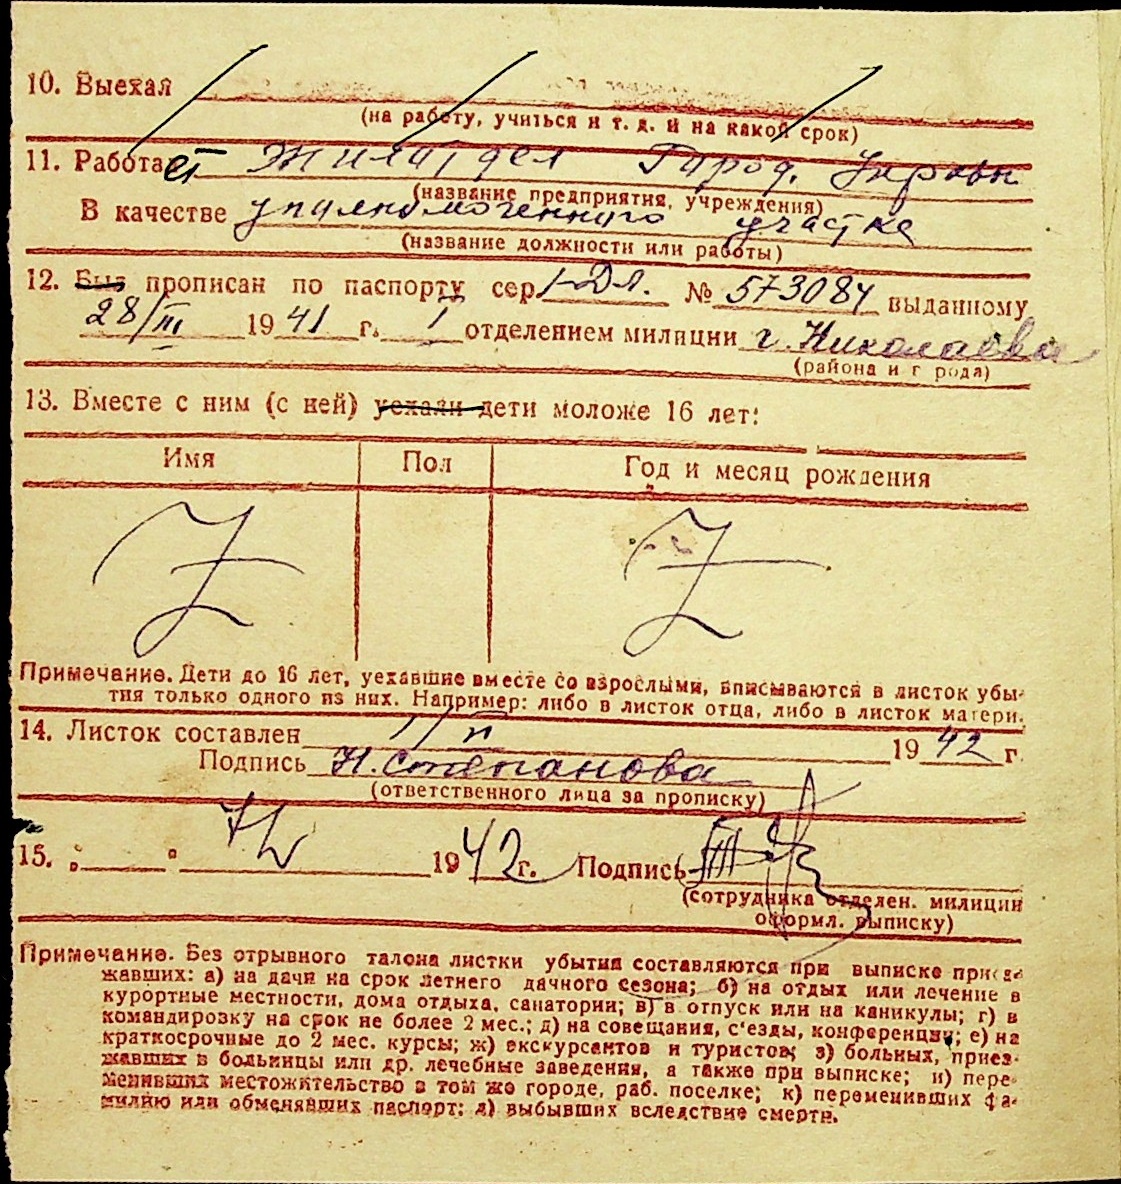 10. Выехал
(на работу, учиться и т. д. и на какой срок)
11. Работает Жилотдел Город. Управы
(название предприятия, учреждения)
В качестве уполномоченного участка
(название должности или работы)
12. Был прописан по паспорту сер. № 573084 выданному
28/III 1941 г. I отделением милиции г. Николаева
(района и г рода)
13. Вместе с ним (с ней) уехали дети моложе 16 лет:
Имя Пол Год и месяц рождения
Z Z
Примечание. Дети до 16 лет, уехавшие вместе со взрослыми, вписываются в листок убы-
тия только одного из них. Например: либо в листок отца, либо в листок матери.
14. Листок составлен 1942 г.
Подпись Н. Степанова
(ответственного лица за прописку)
15. 1942 г. Подпись
(сотрудника отделен. милиции
оформл. выписку)
Примечание. Без отрывного талона листки убытия составляются при выписке приез-
жавших: а) на дачи на срок летнего дачного сезона; б) на отдых или лечение в
курортные местности, дома отдыха, санатории; в) в отпуск или на каникулы; г) в
командировку на срок не более 2 мес.; д) на совещания, с'езды, конференции; е) на
краткосрочные до 2 мес. курсы; ж) экскурсантов и туристов; з) больных, приез-
жавших в больницы или др. лечебные заведения, а также при выписке; и) пере-
менивших местожительство в том же городе, раб. поселке; к) переменивших фа-
милию или обменявших паспорт; л) выбывших вследствие смерти.